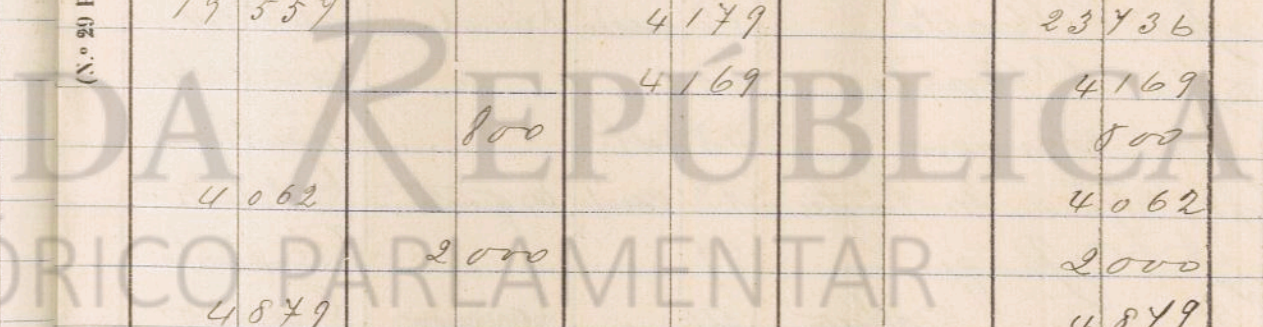 (N.º 29
19 557 4 179 23 736
4 169 4 169
800 800
4 062 4 062
2 000 2 000
4 879 4 879
DA REPÚBLICA
ÓRICO PARLAMENTAR